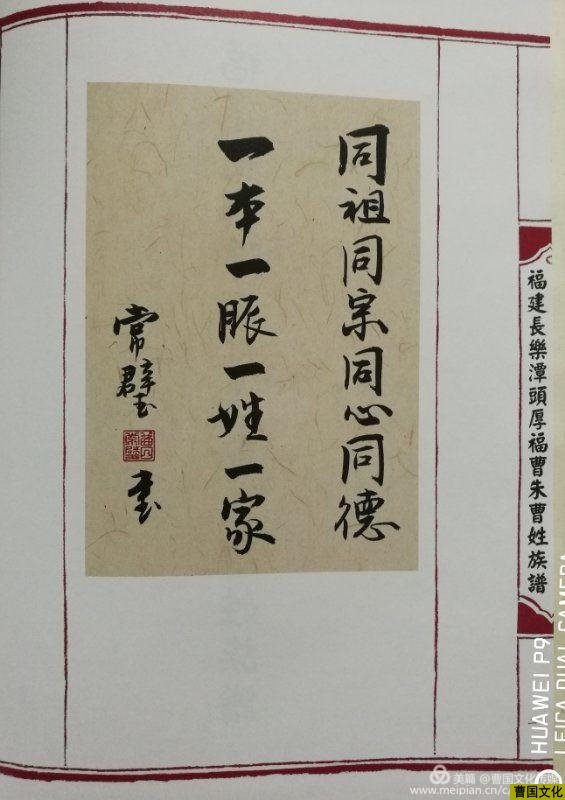 同祖同宗同心同德
一本一脈一姓一家
常璧玉
书
福建長樂潭頭厚福曹朱曹姓族譜
HUAWEI P9
LEICA DUAL CAMERA
美篇 @曹国文化传媒
www.meipian.cn/c/
曹国文化